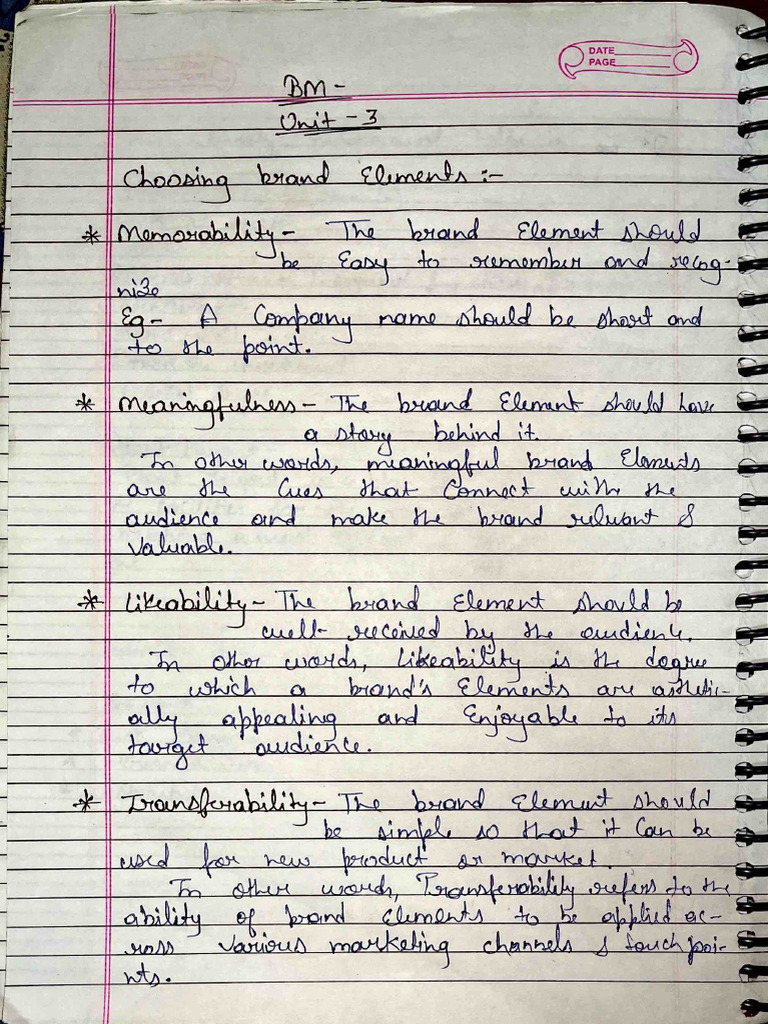 DATE
PAGE
BM -
Unit - 3
Choosing brand Elements :-
* Memorability - The brand Element should
be Easy to remember and recog-
nize
Eg - A Company name should be short and
to the point.
* Meaningfulness - The brand Element should have
a story behind it.
In other words, meaningful brand Elements
are the Cues that Connect with the
audience and make the brand reluvant &
Valuable.
* Likeability - The brand Element should be
well- received by the audience.
In other words, Likeability is the degree
to which a brand's Elements are asthetic-
ally appealing and Enjoyable to its
target audience.
* Transferability - The brand Element should
be simple so that it Can be
used for new product or market.
In other words, Transferability refers to the
ability of brand elements to be applied ac-
ross various marketing channels & touch poi-
nts.